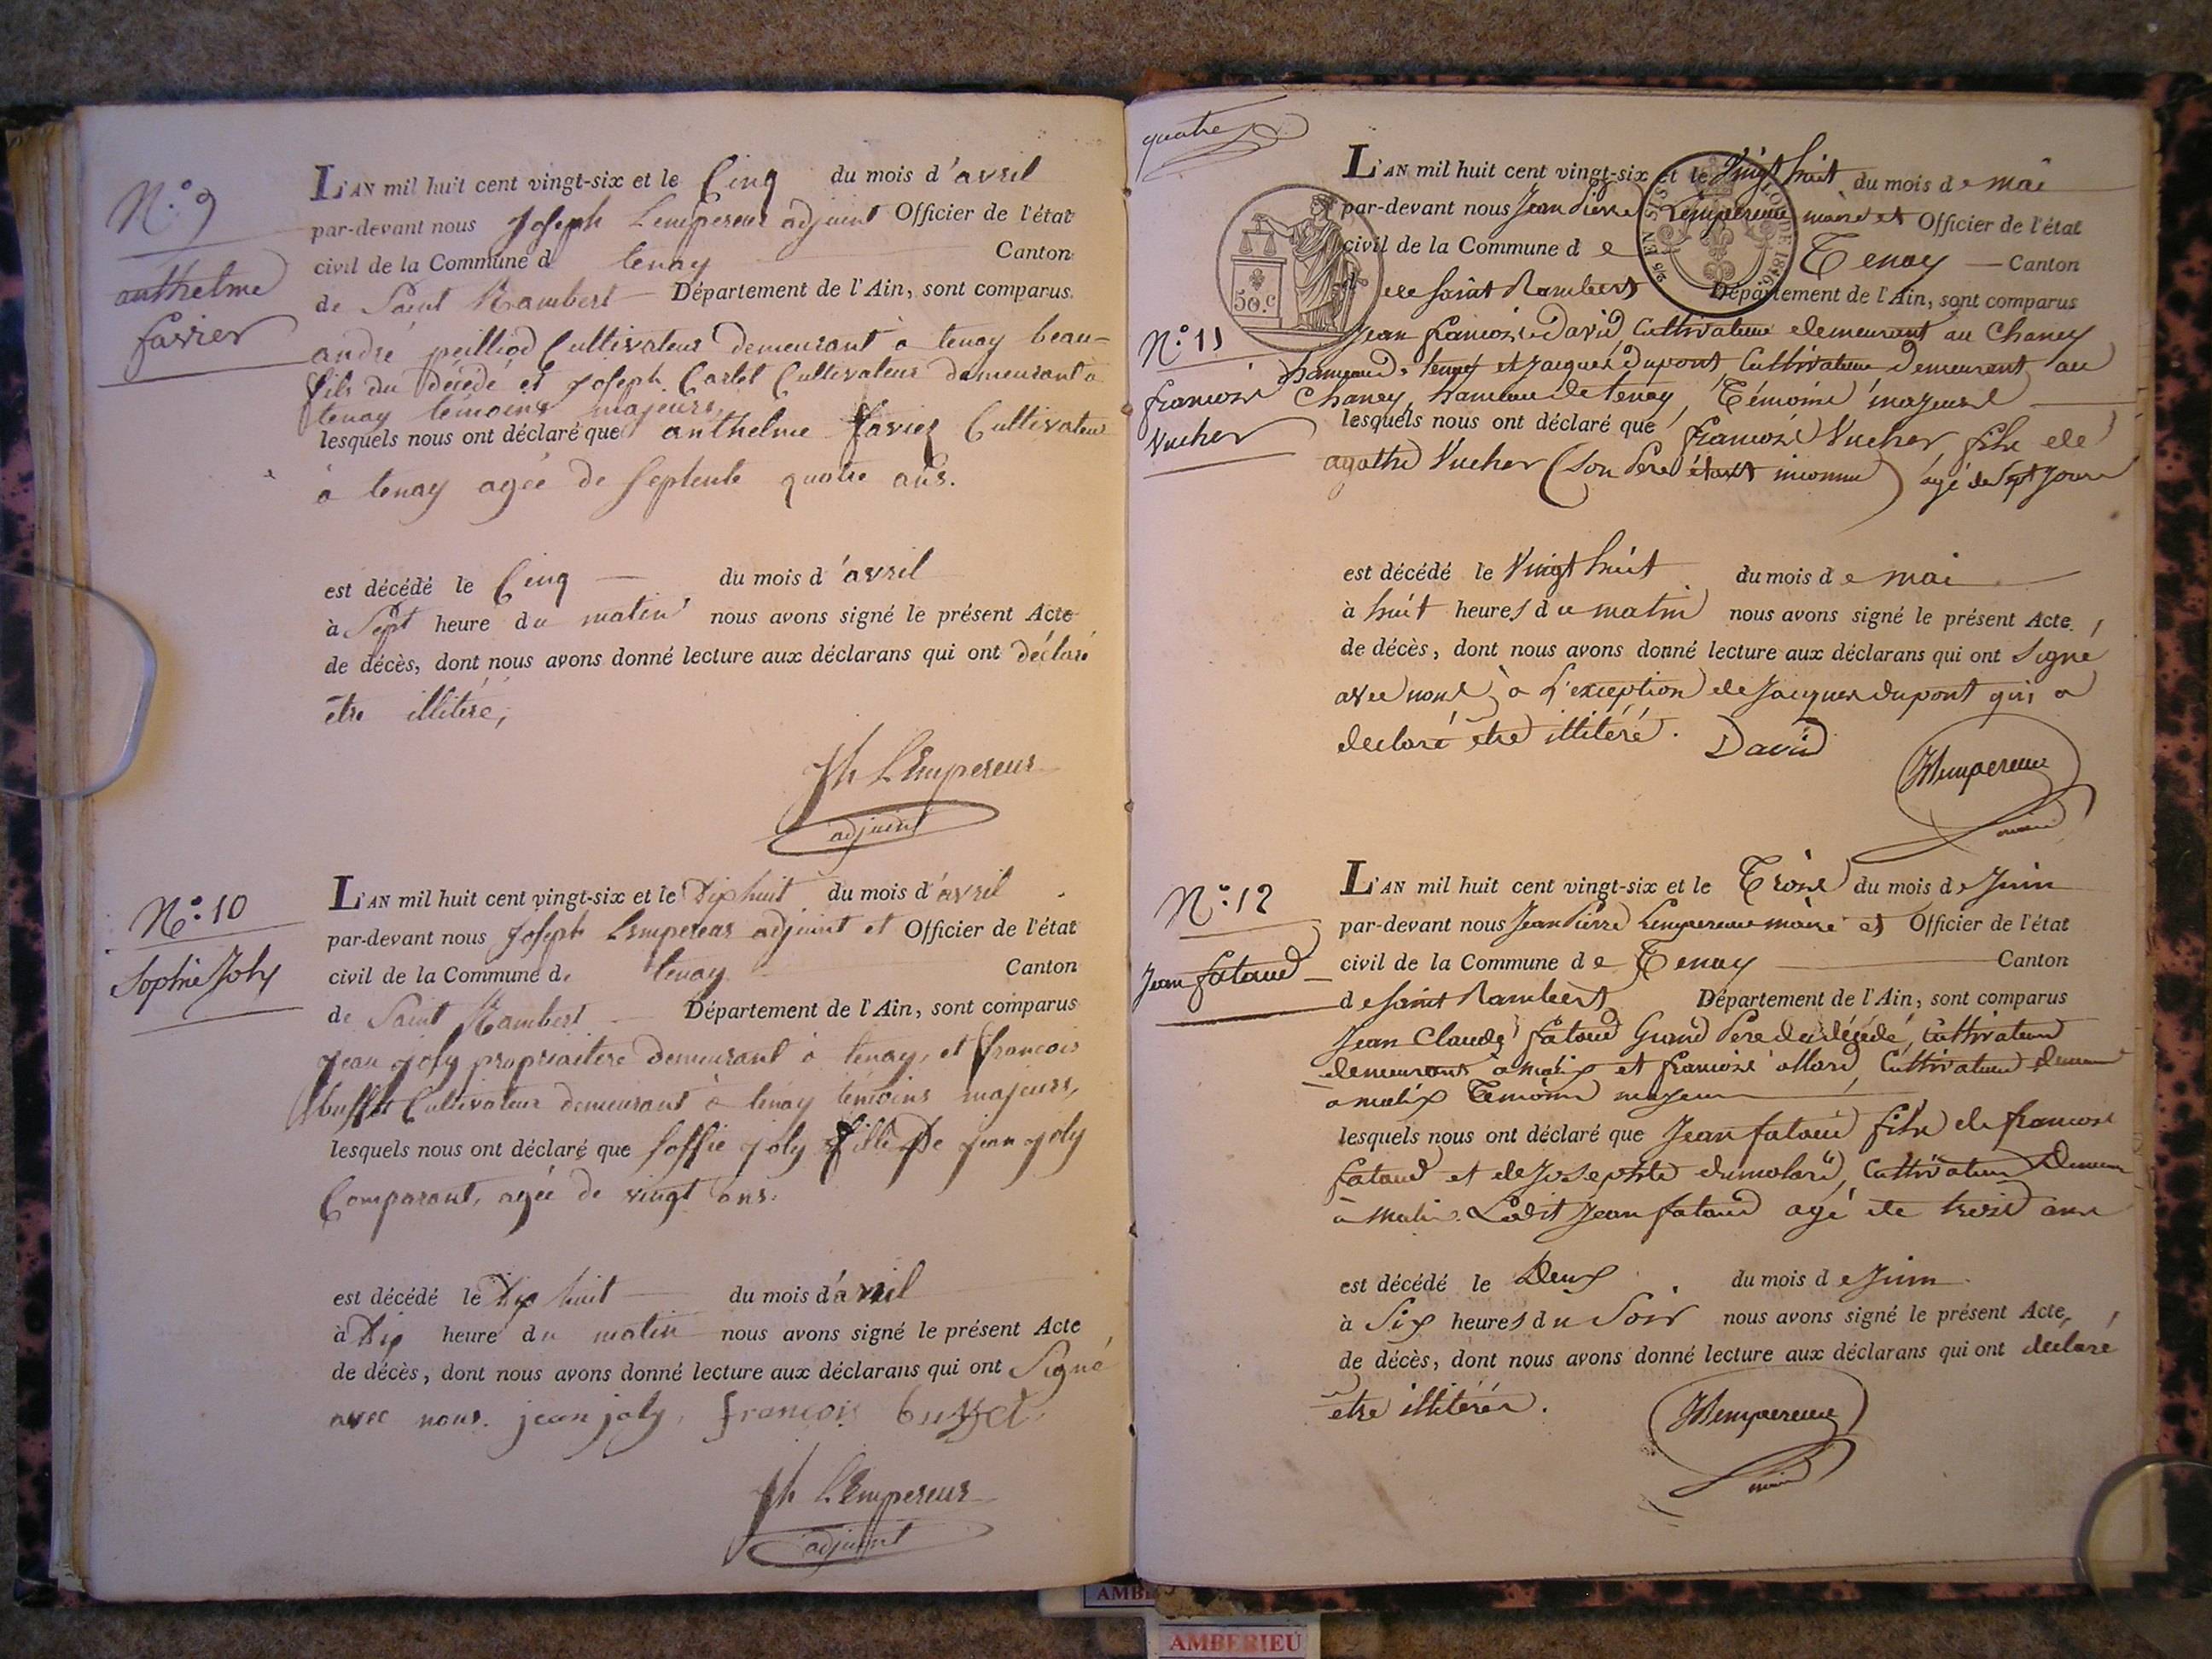 N.º 9
anthelme
favier
L'AN mil huit cent vingt-six et le Cinq du mois d'avril
par-devant nous Joseph Lempereur adjoint Officier de l'état
civil de la Commune d tenay Canton
de Saint Rambert Département de l'Ain, sont comparus
andré peilliod Cultivateur demeurant à tenay beau-
fils du décédé et Joseph Carlet Cultivateur demeurant a
tenay témoins majeurs,
lesquels nous ont déclaré que anthelme favier Cultivateur
à tenay agée de Septente quatre ans.
est décédé le Cinq du mois d'avril
à Sept heure du matin nous avons signé le présent Acte
de décès, dont nous avons donné lecture aux déclarans qui ont déclaré
être illitéré,
Jh LEmpereur
adjoint
N.º 10
Sophie Joly
L'AN mil huit cent vingt-six et le Dix huit du mois d'avril
par-devant nous Joseph Lempereur adjoint et Officier de l'état
civil de la Commune de tenay Canton
de Saint Rambert Département de l'Ain, sont comparus
Jean Joly propriaitere demeurant à tenay, et francois
buffet Cultivateur demeurant à tenay témoins majeurs,
lesquels nous ont déclaré que soffie joly fille De jean joly
Comparant, agée de vingt ans.
est décédé le Dix huit du mois d'avril
à Dix heure du matin nous avons signé le présent Acte
de décès, dont nous avons donné lecture aux déclarans qui ont Signé
avec nous. jean joly, francois buffet
Jh LEmpereur
adjoint
quatre
50.c
N.º 11
francois
Vucher
L'AN mil huit cent vingt-six et le Vingt huit du mois de mai
par-devant nous Jean Pierre Lempereur maire et Officier de l'état
civil de la Commune de Tenay Canton
de Saint Rambert Département de l'Ain, sont comparus
Jean francois David, Cultivateur demeurant au Chaney
hameau de tenay et Jacques Dupont, Cultivateur demeurant au
Chaney, hameau de tenay, Témoins majeurs
lesquels nous ont déclaré que francois Vucher, fils de
agathe Vucher (son Pere étant inconnu) agé de Sept Jours
est décédé le Vingt huit du mois de mai
à huit heures du matin nous avons signé le présent Acte
de décès, dont nous avons donné lecture aux déclarans qui ont Signé
avec nous, à L'exception de Jacques Dupont qui a
declaré etre illitéré. David
Lempereur
maire
N.º 12
Jean fataud
L'AN mil huit cent vingt-six et le Trois du mois de Juin
par-devant nous Jean Pierre Lempereur maire et Officier de l'état
civil de la Commune de Tenay Canton
de Saint Rambert Département de l'Ain, sont comparus
Jean Claude fataud Grand Pere du décédé, Cultivateur
demeurant a malix et francois allard, Cultivateur demeu
a malix Temoins majeurs
lesquels nous ont déclaré que Jean fataud fils de francois
fataud et de Josephte dumolard, Cultivateur Demeu
a malix. Ledit Jean fataud agé de trois ans
est décédé le Deux du mois de Juin
à Six heures du Soir nous avons signé le présent Acte
de décès, dont nous avons donné lecture aux déclarans qui ont déclaré
etre illitérés.
Lempereur
maire
AMBERIEU